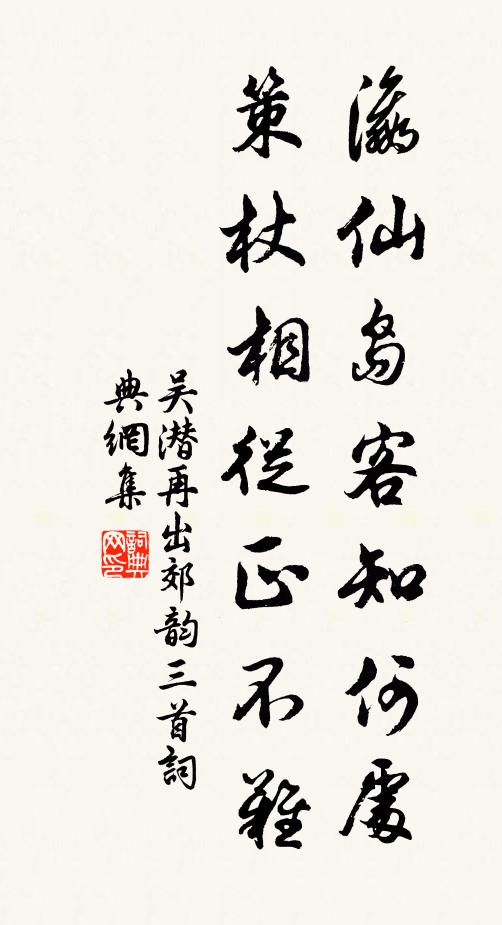 瀛仙岛客知何處
策杖相從正不難
吴潜再出郊韵三首詞
典網集
詞典
网印